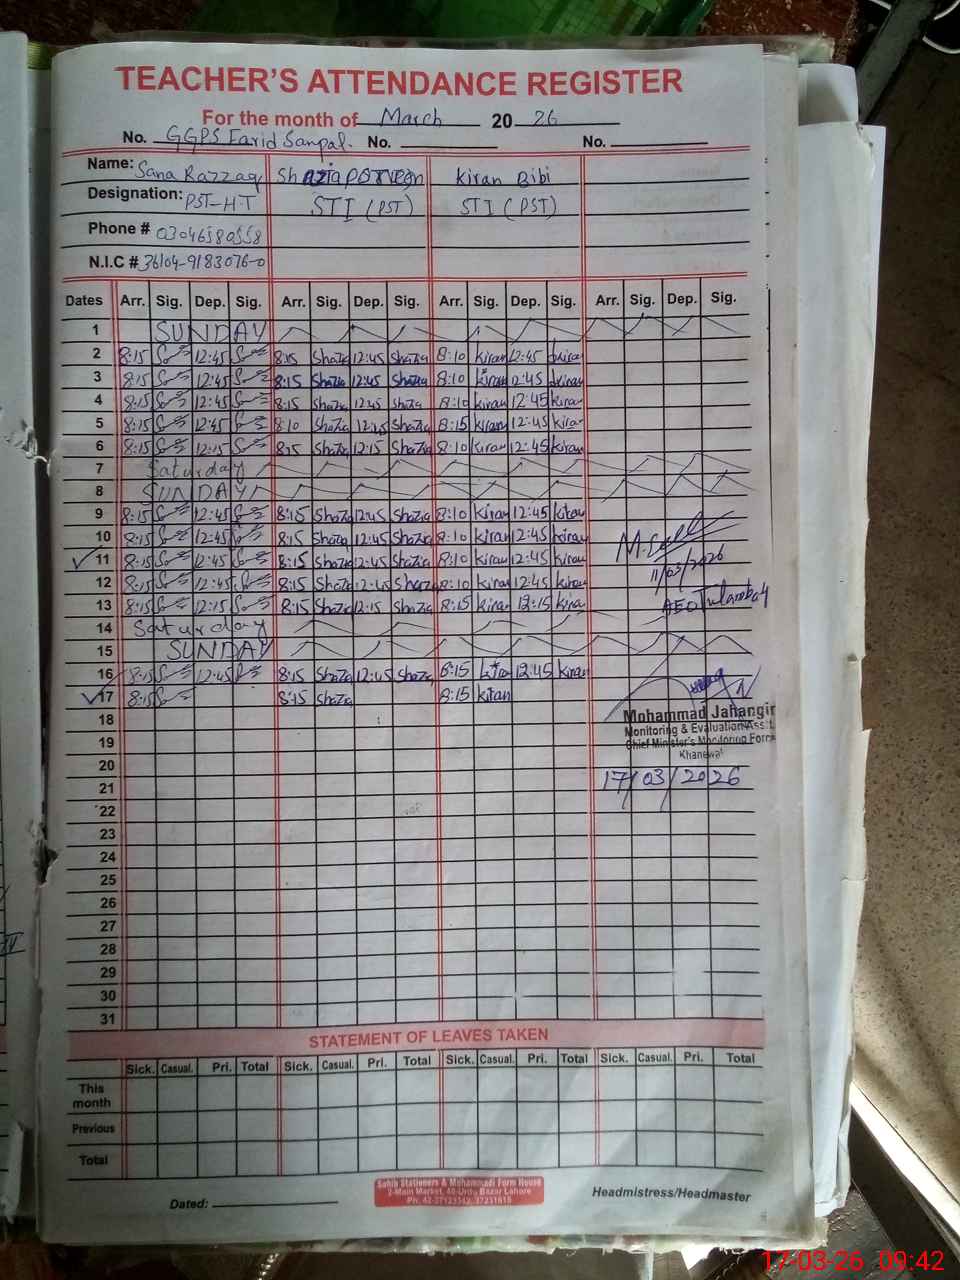 TEACHER'S ATTENDANCE REGISTER
For the month of March 20 26
No. GGPS Farid Sanpal. No. No.
Name: Sana Razzaq Shazia Kiran Bibi
Designation: PST-HT STI (PST) STI (PST)
Phone # 03046580558
N.I.C # 36104-9183076-0
Dates Arr. Sig. Dep. Sig. Arr. Sig. Dep. Sig. Arr. Sig. Dep. Sig. Arr. Sig. Dep. Sig.
1 SUNDAY
2 8:15 12:45 8:15 Shazia 12:45 Shazia 8:10 Kiran 12:45 kiran
3 8:15 12:45 8:15 Shazia 12:45 Shazia 8:10 kiran 12:45 kiran
4 8:15 12:45 8:15 Shazia 12:45 Shazia 8:10 kiran 12:45 kiran
5 8:15 12:45 8:10 Shazia 12:45 Shazia 8:15 kiran 12:45 kiran
6 8:15 12:15 8:15 Shazia 12:15 Shazia 8:10 kiran 12:45 kiran
7 Saturday
8 SUNDAY
9 8:15 12:45 8:15 Shazia 12:45 Shazia 8:10 kiran 12:45 kiran
10 8:15 12:45 8:15 Shazia 12:45 Shazia 8:10 kiran 12:45 kiran
11 8:15 12:45 8:15 Shazia 12:45 Shazia 8:10 kiran 12:45 kiran
11/03/2026
12 8:15 12:45 8:15 Shazia 12:45 Shazia 8:10 kiran 12:45 kiran
13 8:15 12:15 8:15 Shazia 12:15 Shazia 8:15 kiran 12:15 kiran
AEO Tulamba
14 Saturday
15 SUNDAY
16 8:15 12:45 8:15 Shazia 12:45 Shazia 8:15 kiran 12:45 kiran
17 8:15 8:15 Shazia 8:15 kiran
18
Mohammad Jahangir
Monitoring & Evaluation Asstt.
Chief Minister's Monitoring Force
Khanewal
19
20
17/03/2026
21
22
23
24
25
26
27
28
29
30
31
STATEMENT OF LEAVES TAKEN
Sick. Casual. Pri. Total Sick. Casual. Pri. Total Sick. Casual. Pri. Total Sick. Casual. Pri. Total
This month
Previous
Total
Dated:
Sahib Stationers & Mohammadi Form House
2-Main Market, 40-Urdu Bazar Lahore
Headmistress/Headmaster
17-03-26 09:42